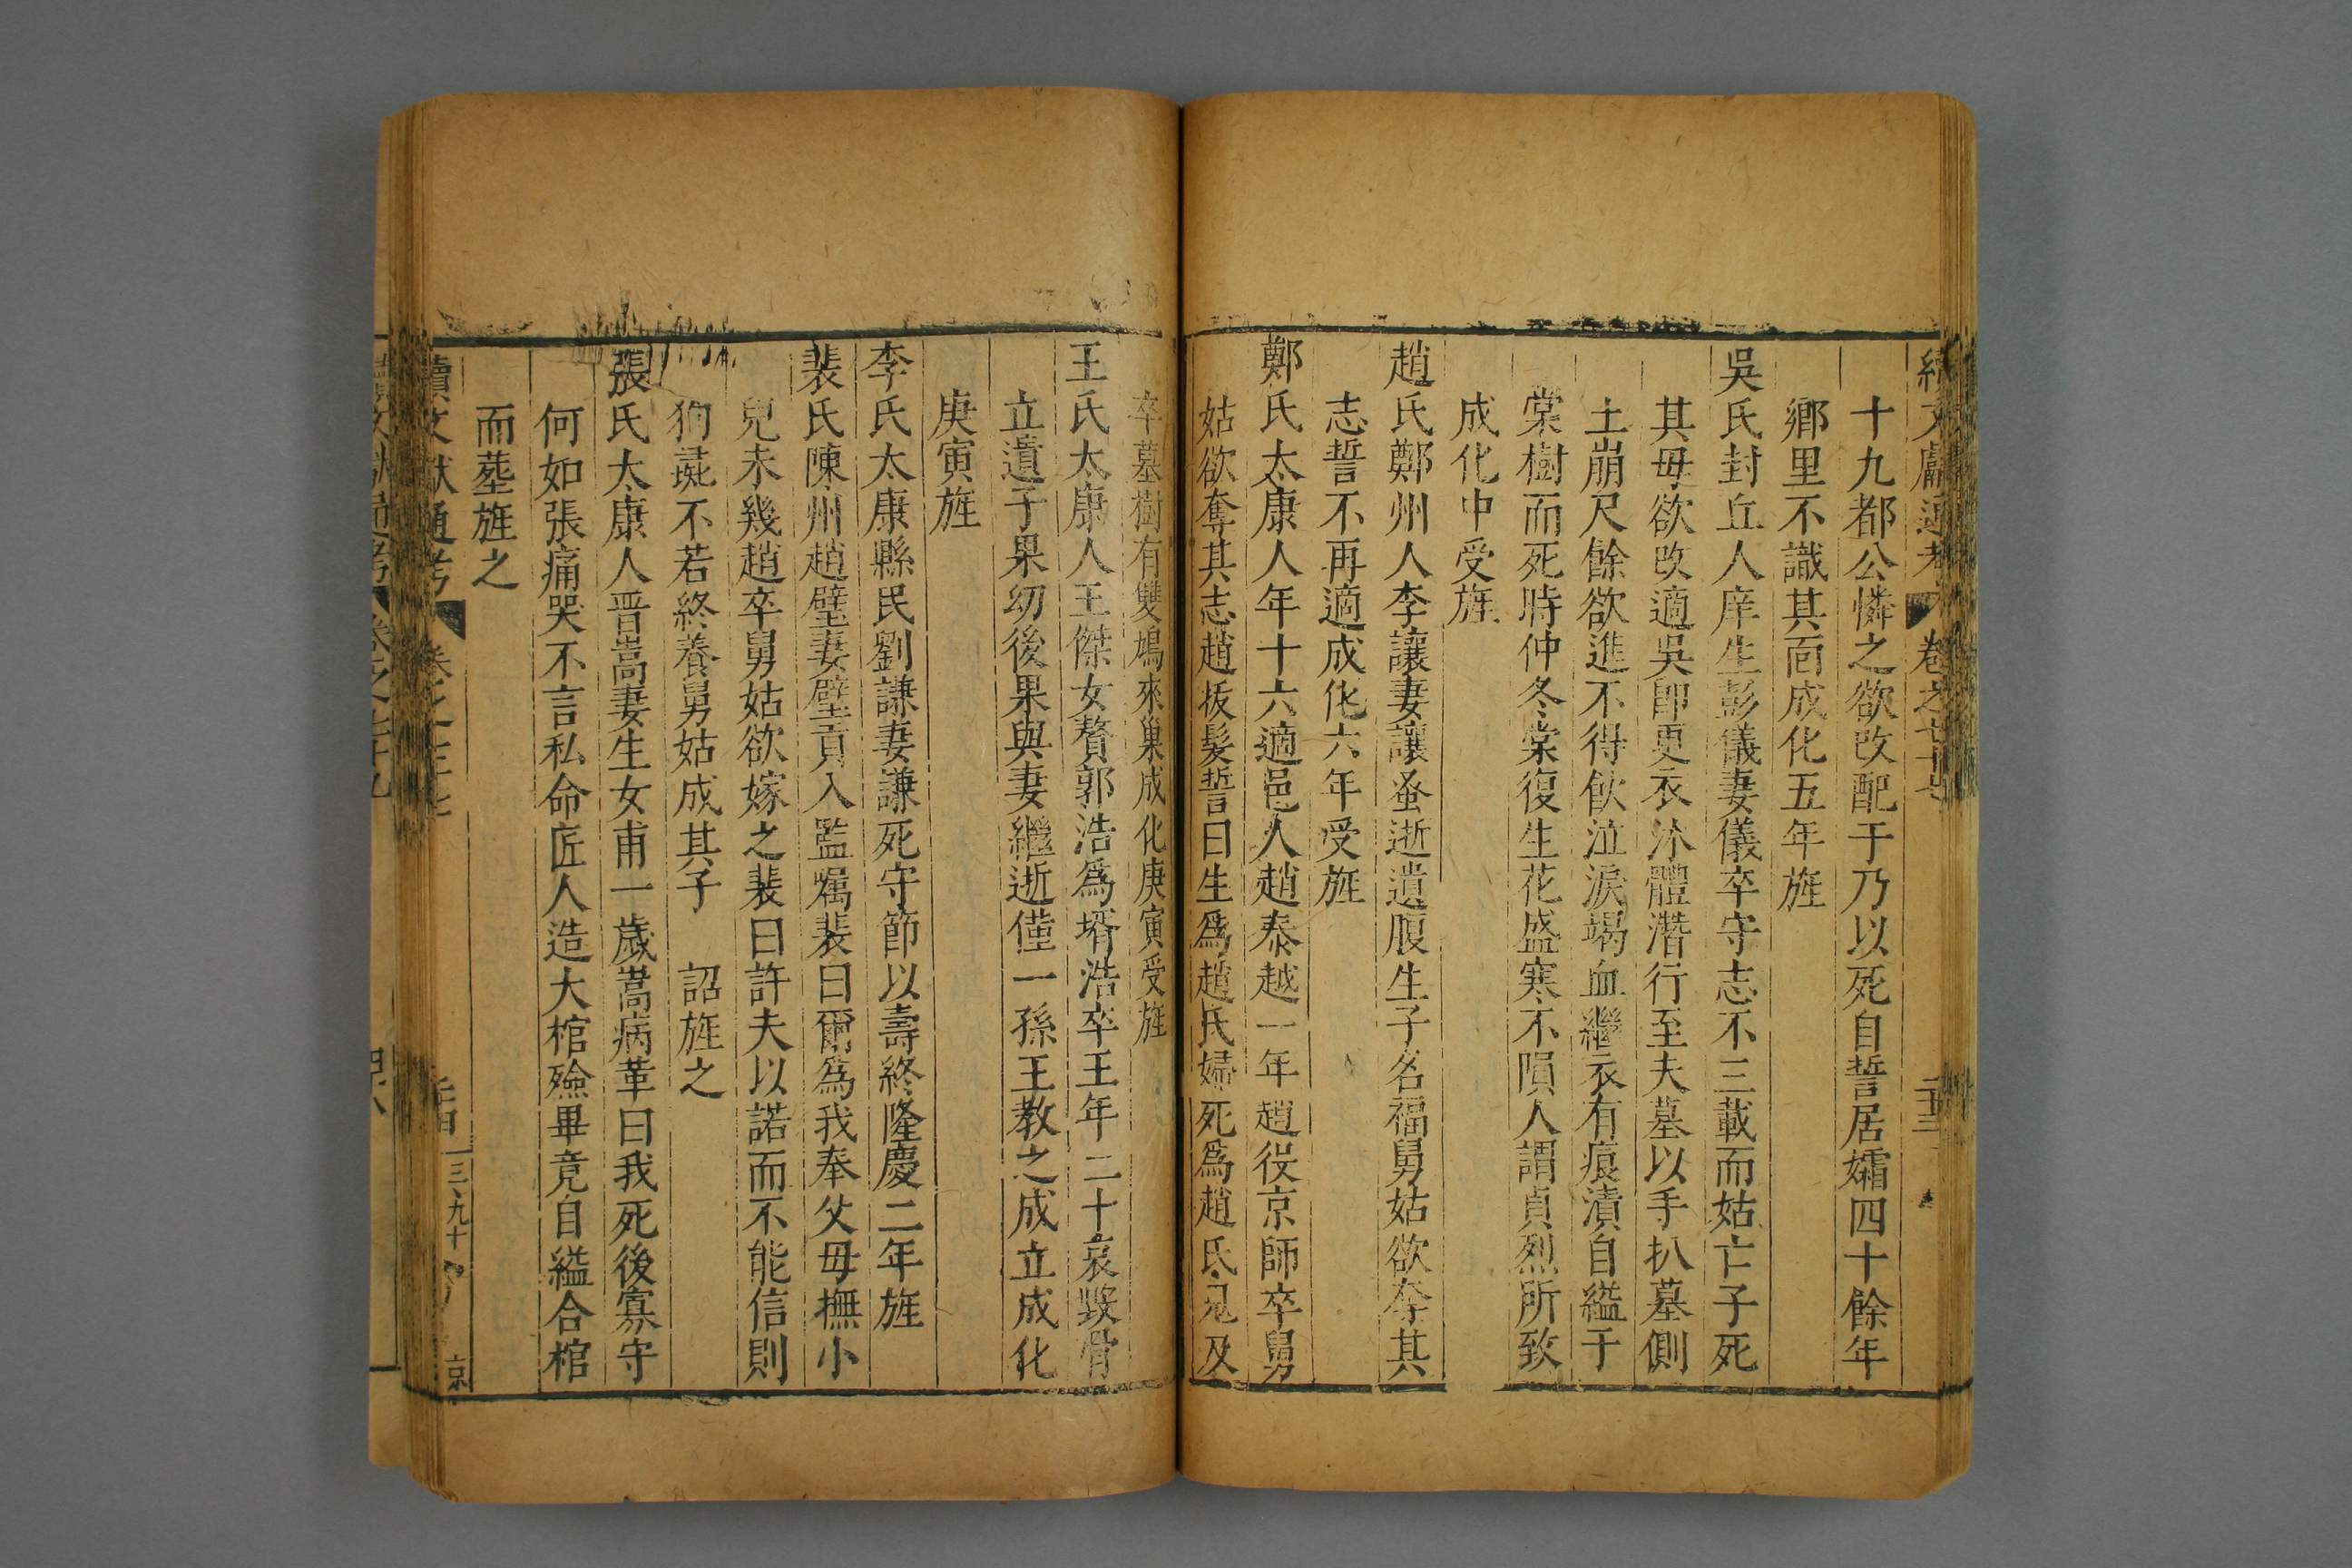 續文獻通考 卷之七十七 二十三
十九都公憐之欲改配于乃以死自誓居孀四十餘年
鄉里不識其面成化五年旌
吳氏封丘人庠生彭儀妻儀卒守志不三載而姑亡子死
其母欲改適吳卽更衣沐體潛行至夫墓以手扒墓側
土崩尺餘欲進不得飲泣淚竭血繼衣有痕漬自縊于
棠樹而死時仲冬棠復生花盛寒不隕人謂貞烈所致
成化中受旌
趙氏鄭州人李讓妻讓蚤逝遺腹生子名福舅姑欲奪其
志誓不再適成化六年受旌
鄭氏太康人年十六適邑人趙泰越一年趙役京師卒舅
姑欲奪其志趙拔髮誓曰生爲趙氏婦死爲趙氏鬼及
卒墓樹有雙鳩來巢成化庚寅受旌
王氏太康人王傑女贅郭浩爲壻浩卒王年二十哀毀骨
立遺子果幼後果與妻繼逝僅一孫王教之成立成化
庚寅旌
李氏太康縣民劉謙妻謙死守節以壽終隆慶二年旌
裴氏陳州趙璧妻璧貢入監囑裴曰爾爲我奉父母撫小
兒未幾趙卒舅姑欲嫁之裴曰許夫以諾而不能信則
狗彘不若終養舅姑成其子 詔旌之
張氏太康人晋嵩妻生女甫一歲嵩病革曰我死後寡守
何如張痛哭不言私命匠人造大棺殮畢竟自縊合棺
而塟旌之
續文獻通考 三九十 京